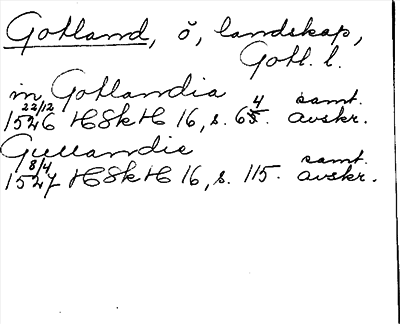 Gotland, ö, landskap,
Gotl. l.
in Gotlandia
22/12 1526 HSkH 16, s. 64. samt. avskr.
Gullandie
8/4 1527 HSkH 16, s. 115. samt. avskr.